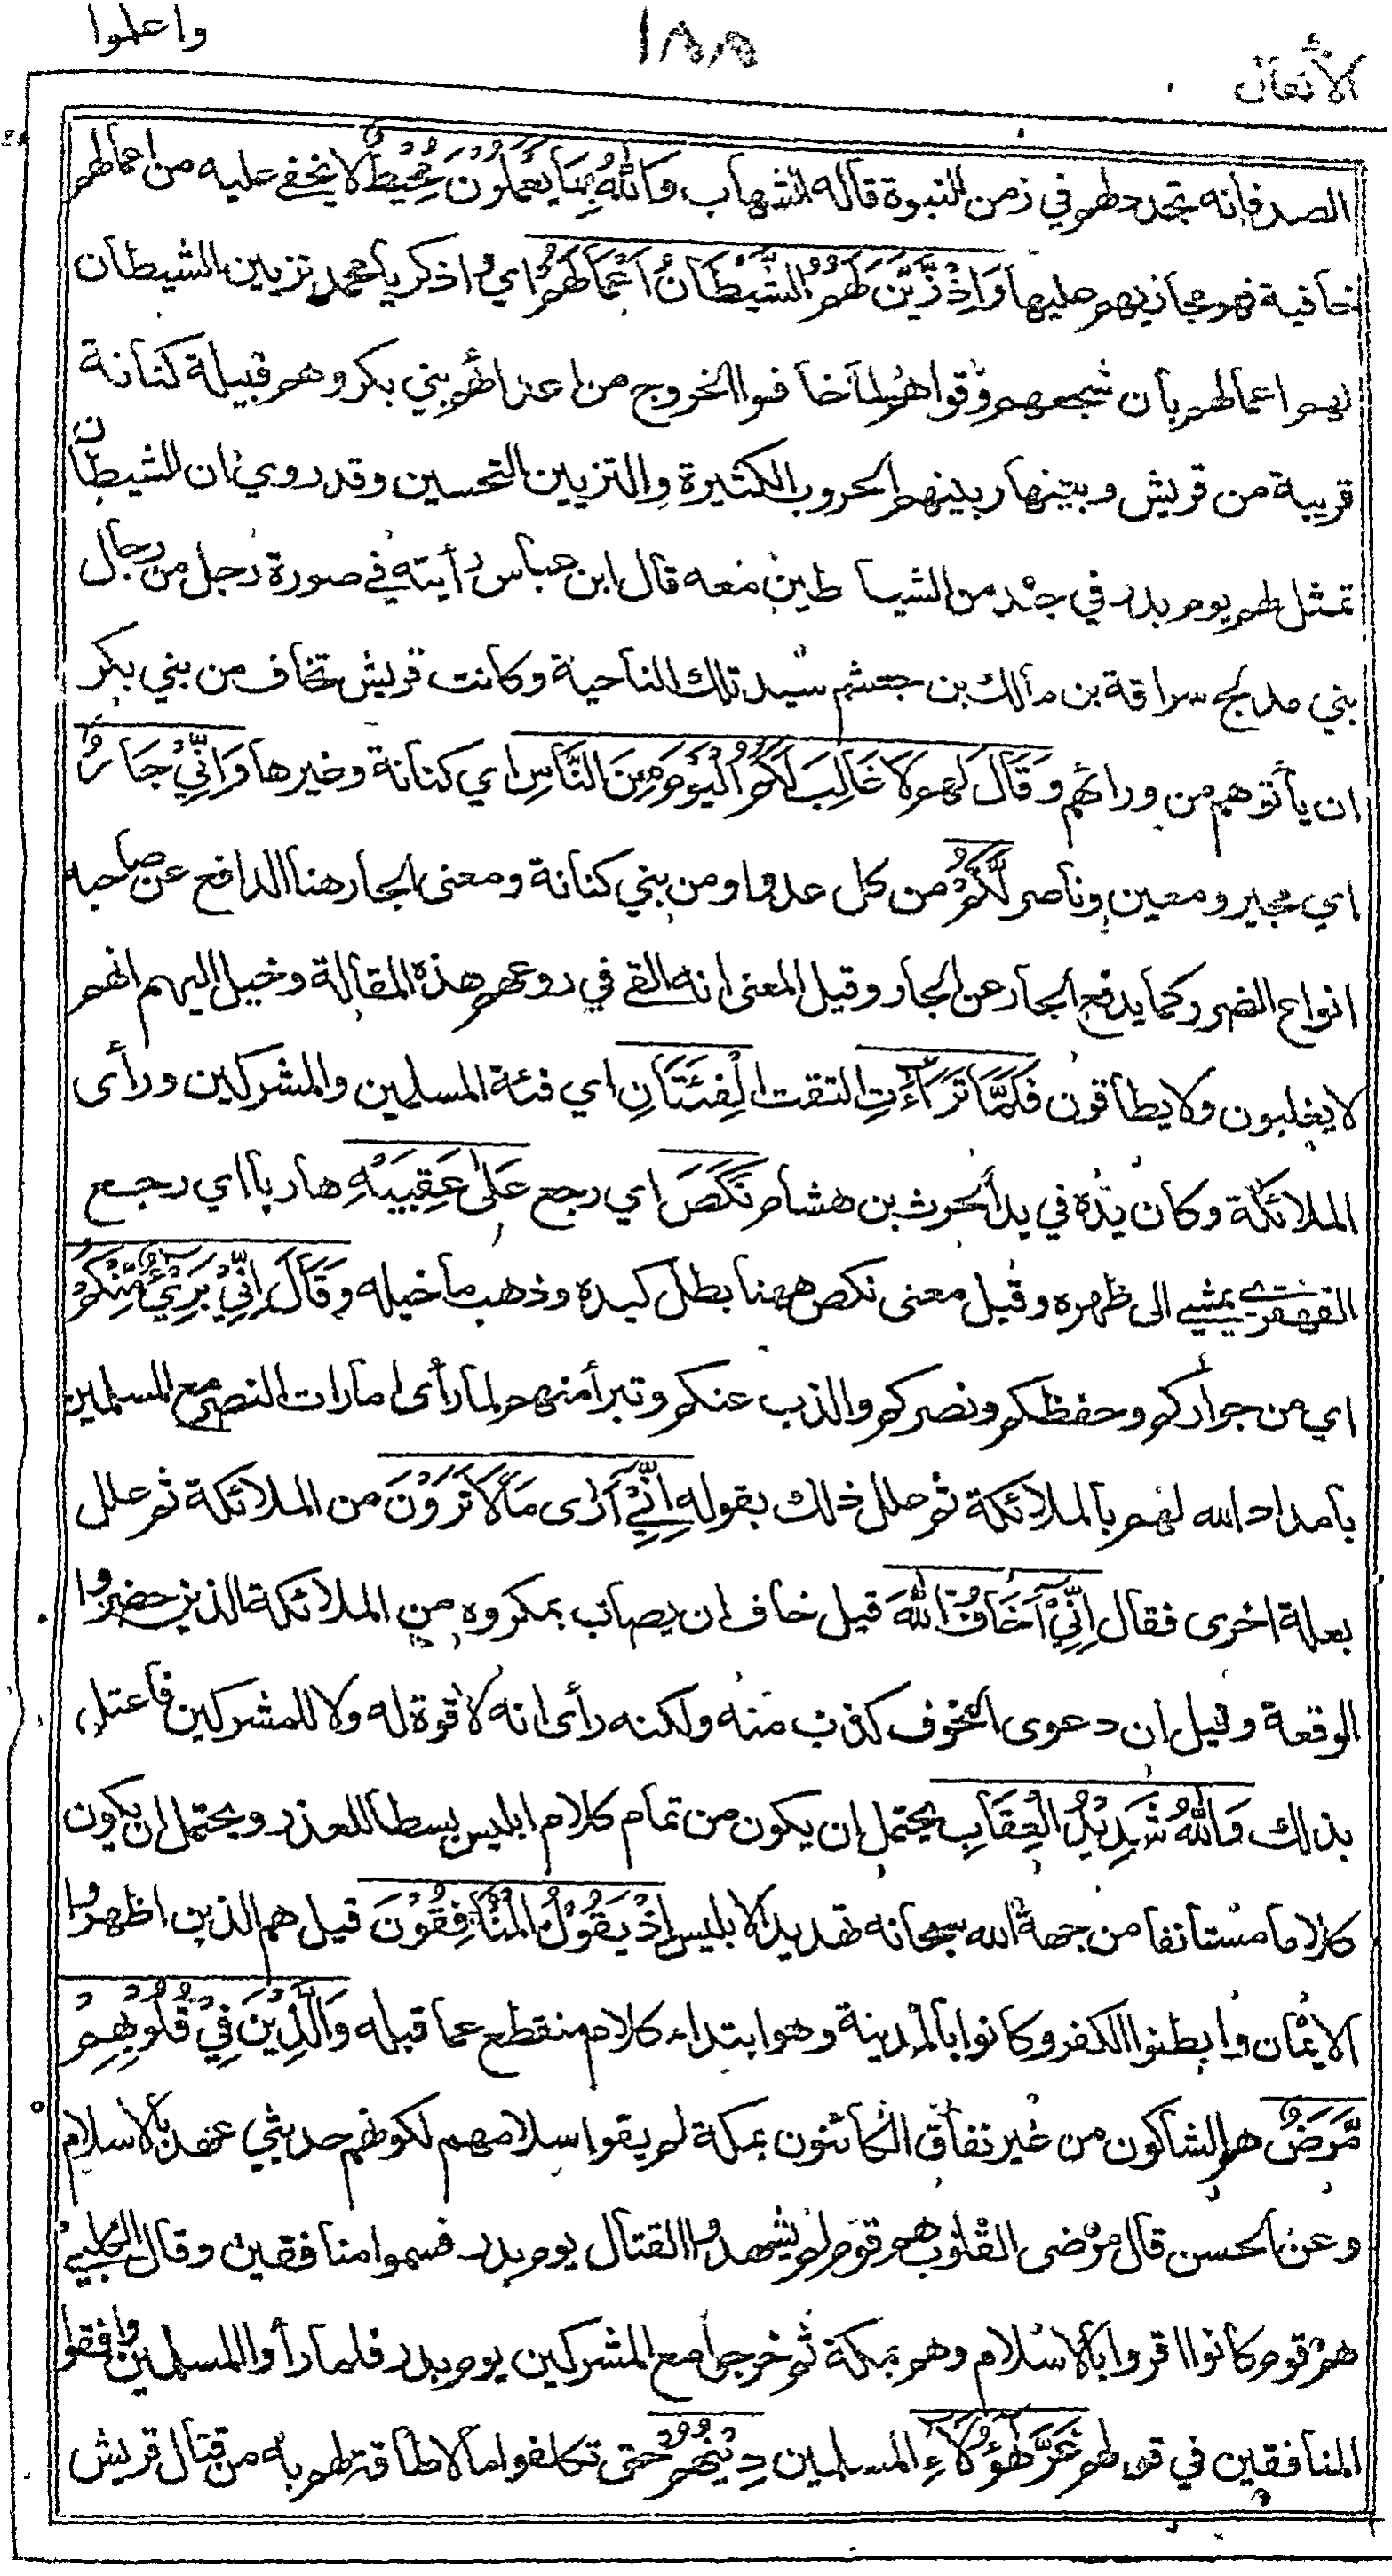 الأنفال ١٨٨ واعلموا
الصد فإنه تجدد لهم في زمن النبوة قاله الشهاب وَاللهُ بِمَا يَعْمَلُوْنَ مُحِيْطٌ لا يخفى عليه من اعمالهم
خافية فهو مجازيهم عليها وَاِذْ زَيَّنَ لَهُمُ الشَّيْطَانُ اَعْمَالَهُمْ اي واذكر يا محمد تزيين الشيطان
لهم اعمالهم بأن شجعهم وقواهم لما خافوا الخروج من اعدائهم بني بكر وهم قبيلة كنانة
قريبة من قريش وبينها وبينهم الحروب الكثيرة والتزيين التحسين وقد روي ان الشيطان
تمثل لهم يوم بدر في جند من الشياطين معه قال ابن عباس رأيته في صورة رجل من رجال
بني مدلج سراقة بن مالك بن جعشم سيد تلك الناحية وكانت قريش تخاف من بني بكر
ان يأتوهم من ورائهم وَقَالَ لهم لَا غَالِبَ لَكُمُ الْيَوْمَ مِنَ النَّاسِ اي كنانة وغيرها وَاِنِّيْ جَارٌ
اي مجير ومعين وناصر لَّكُمْ من كل عدو او من بني كنانة ومعنى الجار هنا الدافع عن صاحبه
انواع الضرر كما يدفع الجار عن الجار وقيل المعنى انه القى في روعهم هذه المقالة وخيل اليهم انهم
لا يغلبون ولا يطاقون فَلَمَّا تَرَآءَتِ التقت الْفِئَتَانِ اي فئة المسلمين والمشركين ورأى
الملائكة وكان يده في يد الحرث بن هشام نَكَصَ اي رجع عَلٰى عَقِبَيْهِ هاربا اي رجع
القهقرى يمشي الى ظهره وقيل معنى نكص ههنا بطل كيده وذهب ما خيله وَقَالَ اِنِّيْ بَرِيْٓءٌ مِّنْكُمْ
اي من جواركم وحفظكم ونصركم والذب عنكم وتبرأ منهم لما رأى امارات النصر مع المسلمين
بامداد الله لهم بالملائكة ثم علل ذلك بقوله اِنِّيْٓ اَرٰى مَا لَا تَرَوْنَ من الملائكة ثم علل
بعلة اخرى فقال اِنِّيْٓ اَخَافُ اللهَ قيل خاف ان يصاب بمكروه من الملائكة الذين حضروا
الوقعة وقيل ان دعوى الخوف كذب منه ولكنه رأى انه لا قوة له ولا للمشركين فاعتل
بذلك وَاللهُ شَدِيْدُ الْعِقَابِ يحتمل ان يكون من تمام كلام ابليس بسطا للعذر ويحتمل ان يكون
كلاما مستأنفا من جهة الله سبحانه تهديدا لابليس اِذْ يَقُوْلُ الْمُنَافِقُوْنَ قيل هم الذين اظهروا
الايمان وابطنوا الكفر وكانوا بالمدينة وهو ابتداء كلام منقطع عما قبله وَالَّذِيْنَ فِيْ قُلُوْبِهِمْ
مَّرَضٌ هم الشاكون من غير نفاق الكائنون بمكة لم يقوا سلامهم لكونهم حديثي عهد بالاسلام
وعن الحسن قال مرضى القلوب هم قوم لم يشهدوا القتال يوم بدر فسموا منافقين وقال الكلبي
هم قوم كانوا اقروا بالاسلام وهم بمكة ثم خرجوا مع المشركين يوم بدر فلما رأوا المسلمين وافقوا
المنافقين في قولهم غَرَّ هٰٓؤُلَاءِ المسلمين دِيْنُهُمْ حتى تكلفوا ما لا طاقة لهم به من قتال قريش